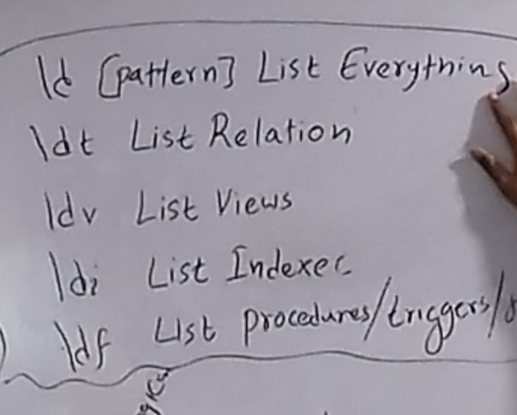 \d [pattern] List Everything
\dt List Relation
\dv List Views
\di List Indexec
\df List procedures/triggers/